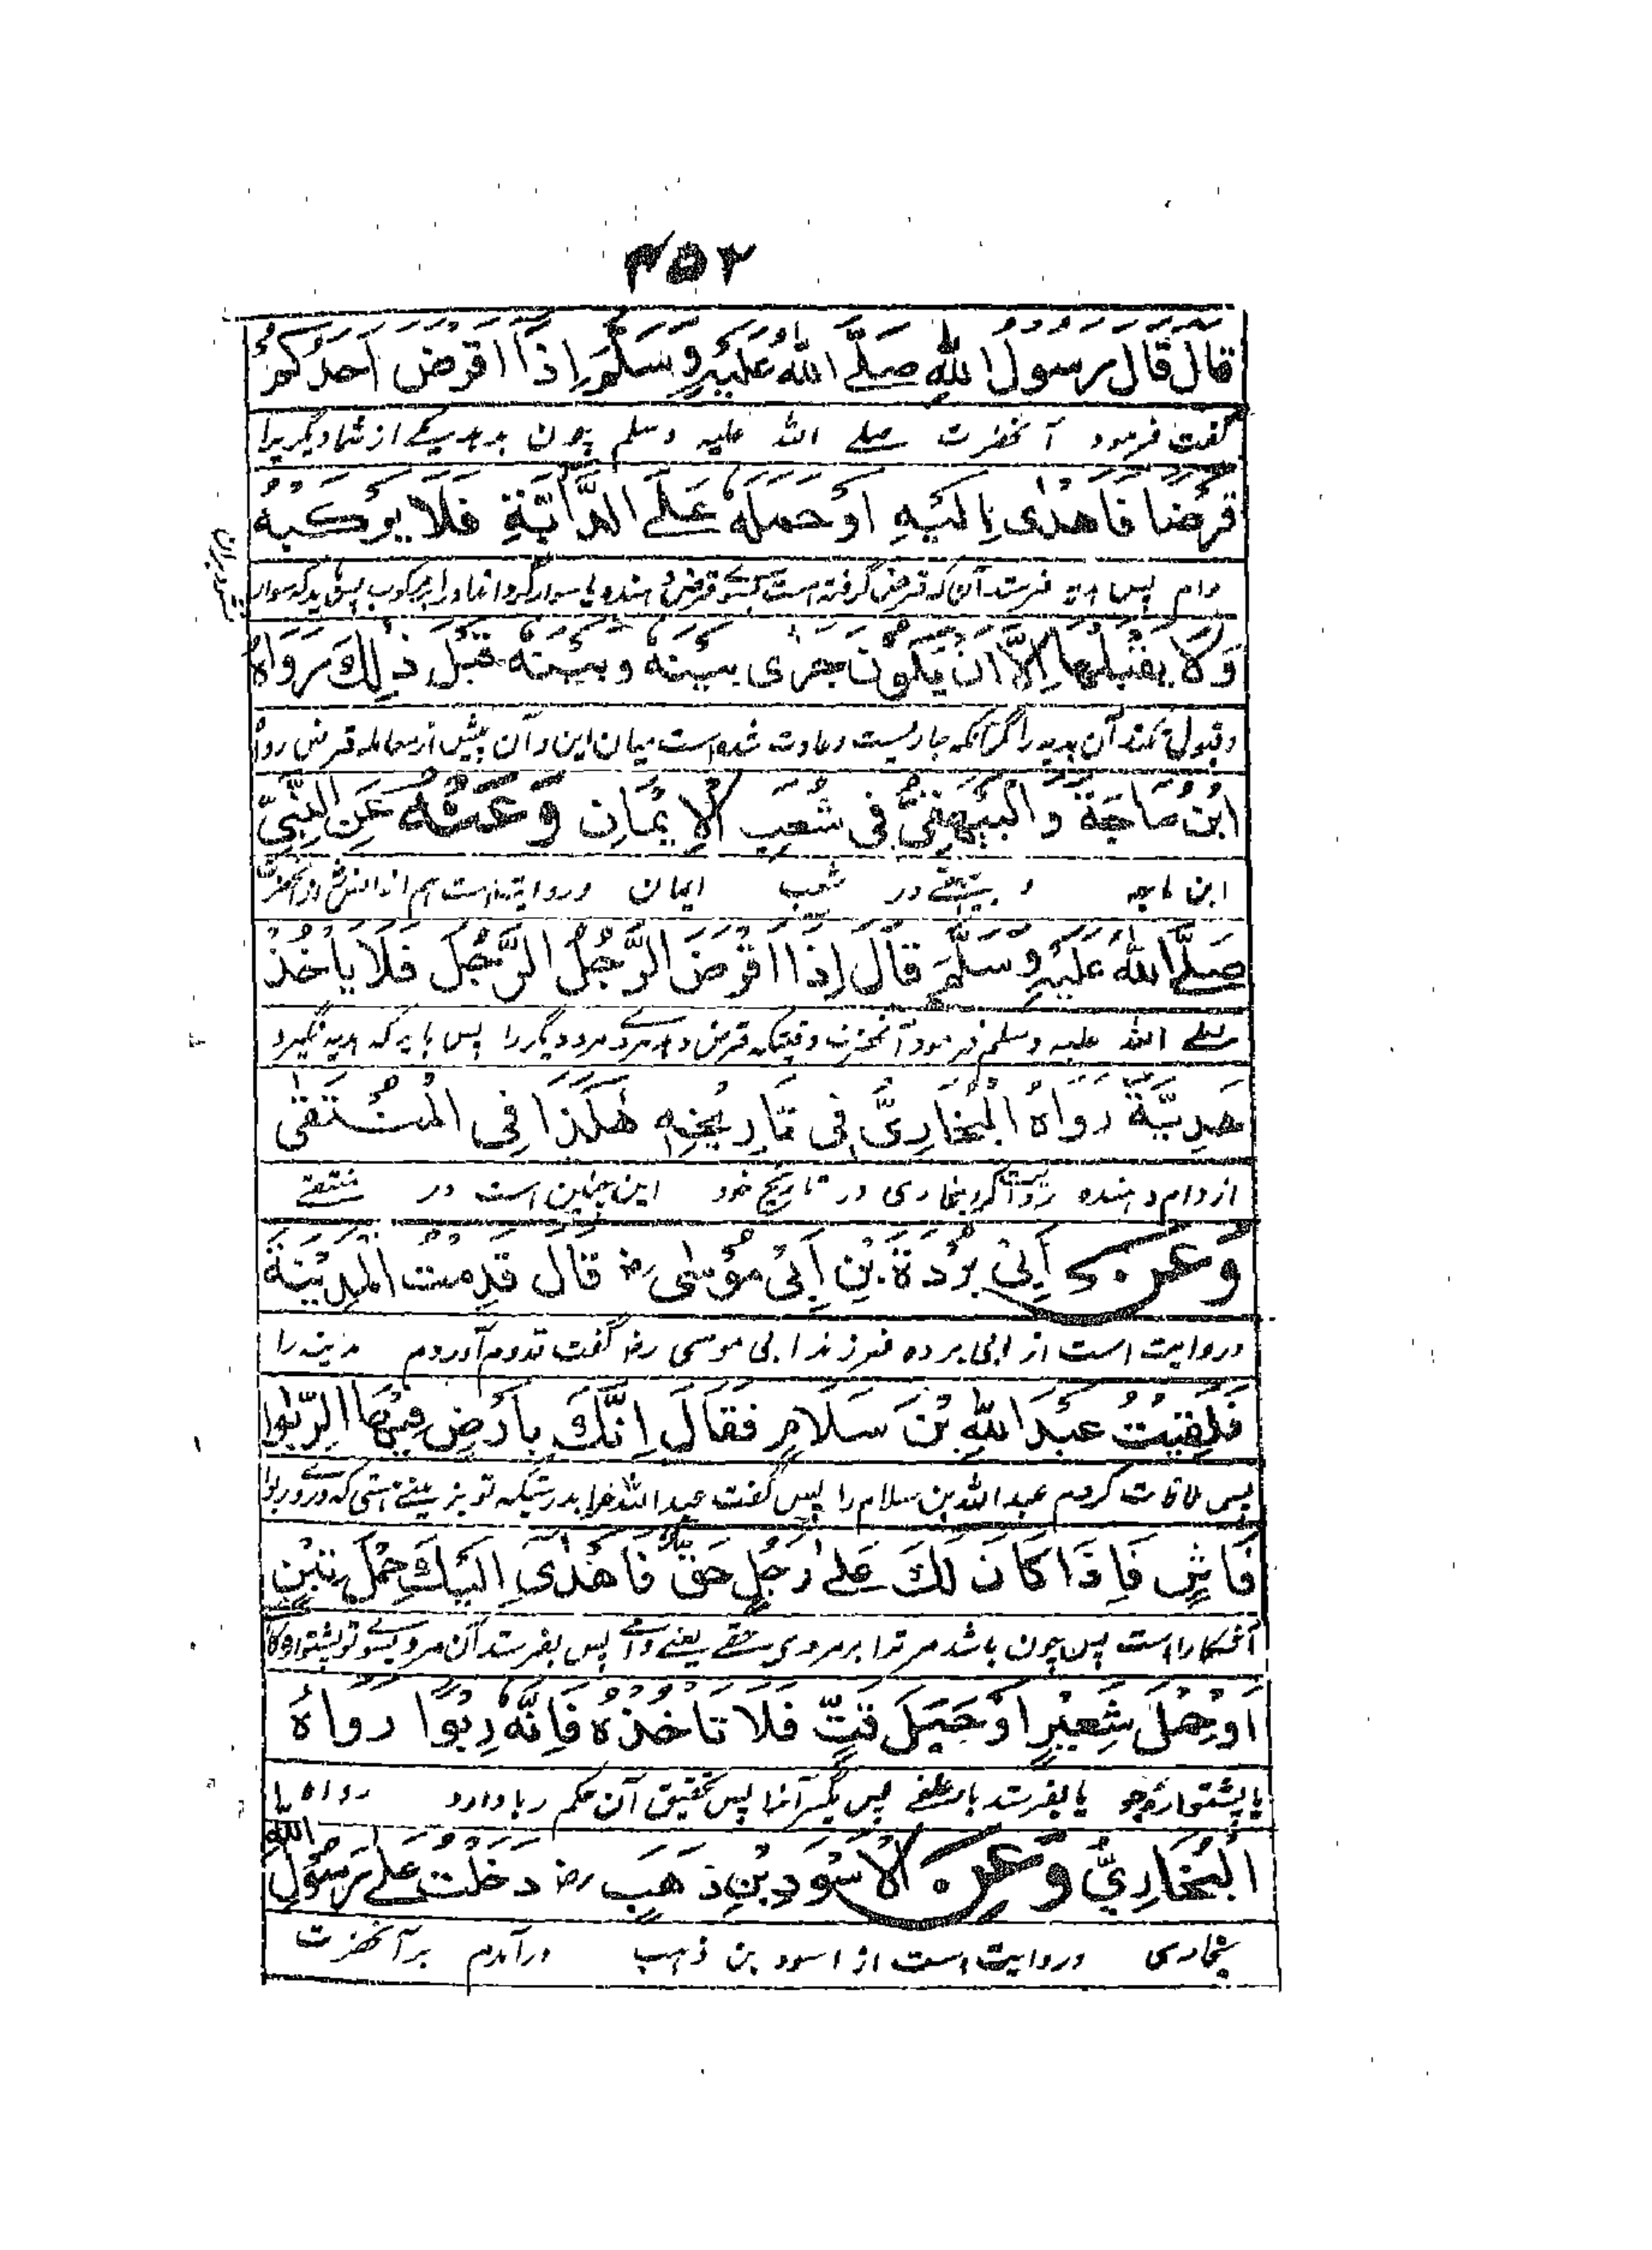 ۴۵۲
قَالَ قَالَ رَسُولُ اللهِ صَلَّے اللهُ عَلَيْهِ وَسَلَّمَ اِذَا اَقْرَضَ اَحَدُكُمْ
گفت فرمود آنحضرت صلے الله علیه وسلم چون بدهد یکے از شما دیگریرا
قَرْضًا فَاَهْدٰى اِلَيْهِ اَوْحَمَلَهٗ عَلَے الدَّآبَّةِ فَلَا يَرْكَبْهُ
وام پس هدیه فرستد آن که قرض گرفته است بسوے قرض دهنده یا سوار
وَلَا يَقْبَلْهَا اِلَّا اَنْ يَّكُوْنَ جَرٰى بَيْنَهٗ وَبَيْنَهٗ قَبْلَ ذٰلِكَ رَوَاهُ
و قبول نکند آن هدیه را مگر آنکه جاریست و عادت شده است میان این و آن پیش از معامله قرض رواه
ابْنُ مَاجَةَ وَالْبَيْهَقِيُّ فِى شُعَبِ الْاِيْمَانِ وَعَنْهُ عَنِ النَّبِيِّ
ابن ماجه و بیهقے در شعب ایمان و روایت است هم از انس از آنحضرت
صَلَّے اللهُ عَلَيْهِ وَسَلَّمَ قَالَ اِذَا اَقْرَضَ الرَّجُلُ الرَّجُلَ فَلَا يَأْخُذْ
صلے الله علیه وسلم فرمود آنحضرت وقتیکه قرض دهد مردے مرد دیگر را پس باید که هدیه نگیرد
هَدِيَّةً رَوَاهُ الْبُخَارِىُّ فِى تَارِيْخِهٖ هٰكَذَا فِى الْمُنْتَقٰى
از وام دهنده روایت کرد بخاری در تاریخ خود این چنین است در منتقے
وَعَنْ اَبِىْ بُرْدَةَ بْنِ اَبِىْ مُوْسٰى رض قَالَ قَدِمْتُ الْمَدِيْنَةَ
و روایت است از ابی برده فرزند ابی موسی رض گفت قدوم آوردم مدینه را
فَلَقِيْتُ عَبْدَ اللهِ بْنَ سَلَامٍ فَقَالَ اِنَّكَ بِاَرْضٍ فِيْهَا الرِّبٰوا
پس ملاقات کردم عبد الله بن سلام را پس گفت عبد الله مرا بدرستیکه تو بزمینے هستی که در وے ربوا
فَاشٍ فَاِذَا كَانَ لَكَ عَلٰى رَجُلٍ حَقٌّ فَاَهْدٰى اِلَيْكَ حِمْلَ تِبْنٍ
آشکارا است پس چون باشد مر ترا بر مردی حقے یعنے وامے پس بفرستد آن مرد بسوے تو پشتواره کاه
اَوْحِمْلَ شَعِيْرٍ اَوْ حَبْلَ قَتٍّ فَلَا تَاْخُذْهُ فَاِنَّهٗ رِبٰوا رَوَاهُ
یا پشتواره جو یا بفرستد بار علفے پس مگیر آنرا پس تحقیق آن حکم ربا دارد رواه
الْبُخَارِيُّ وَعَنِ الْاَسْوَدِ بْنِ ذَهَبٍ رض دَخَلْتُ عَلٰے رَسُوْلِ اللهِ
بخاری و روایت است از اسود بن ذهب در آمدم بر آنحضرت